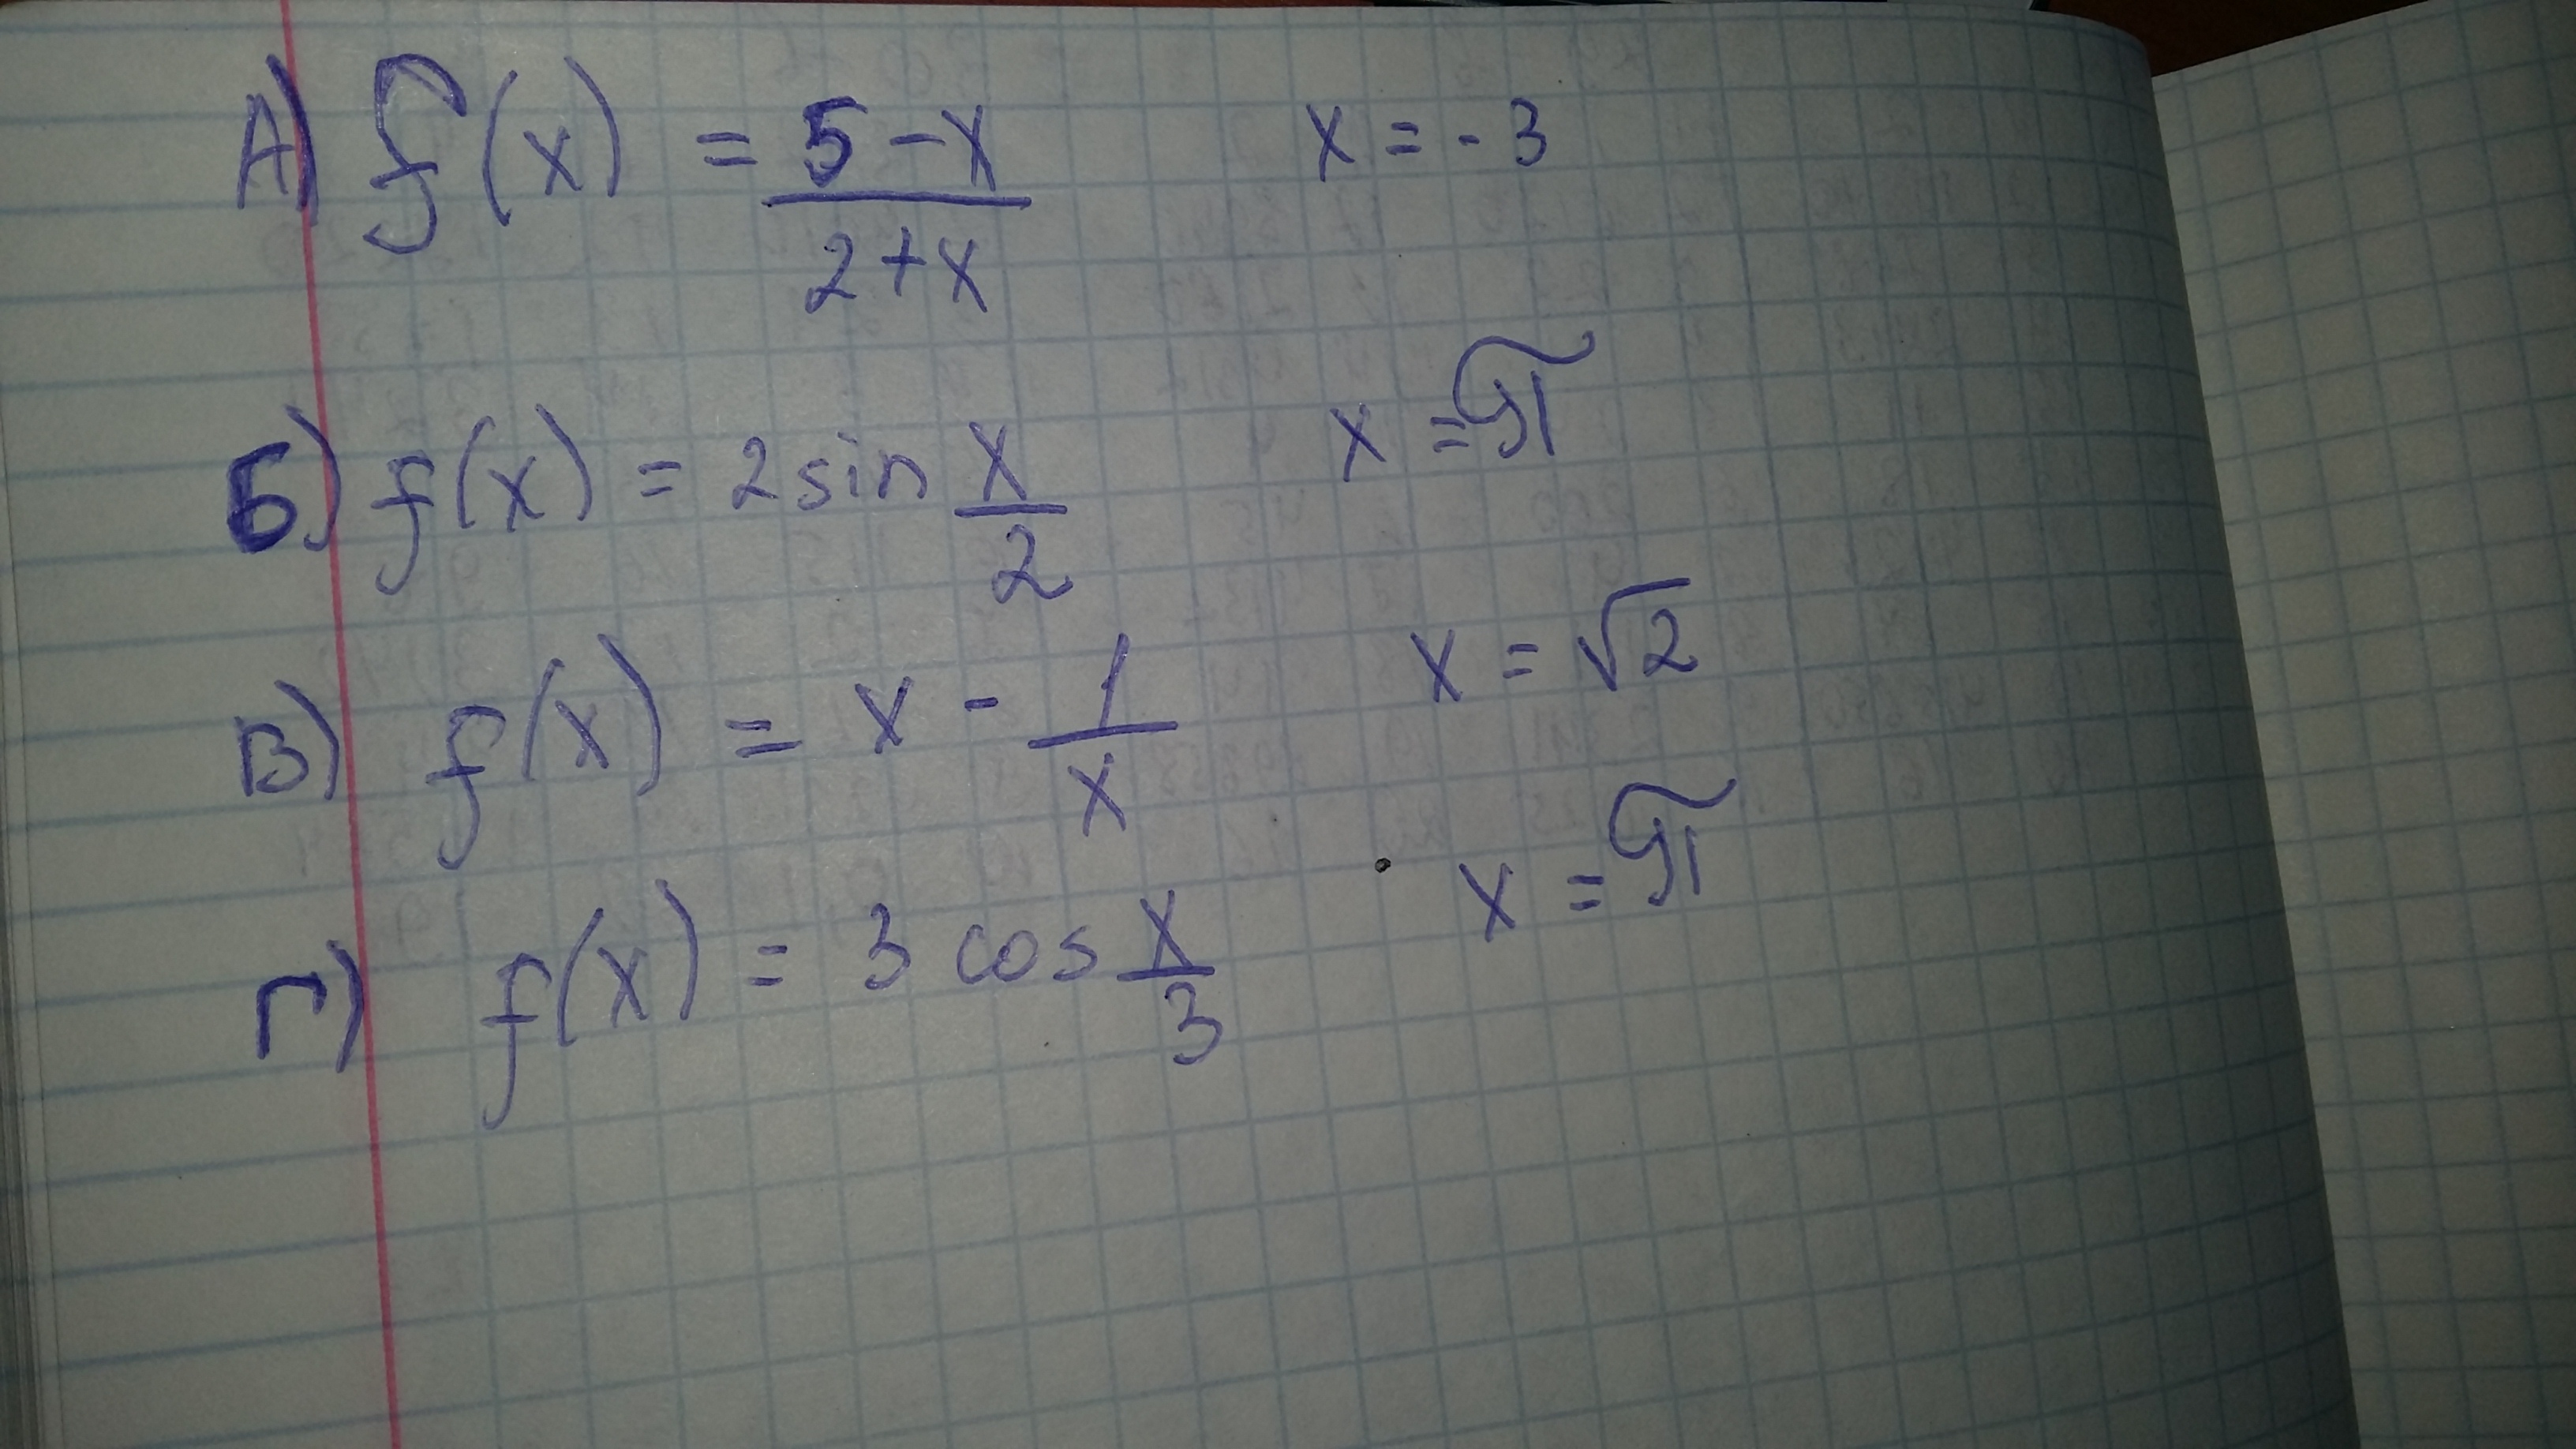 А) f(x) = (5-x)/(2+x) x = -3
Б) f(x) = 2 sin x/2 x = π
В) f(x) = x - 1/x x = √2
Г) f(x) = 3 cos x/3 x = π